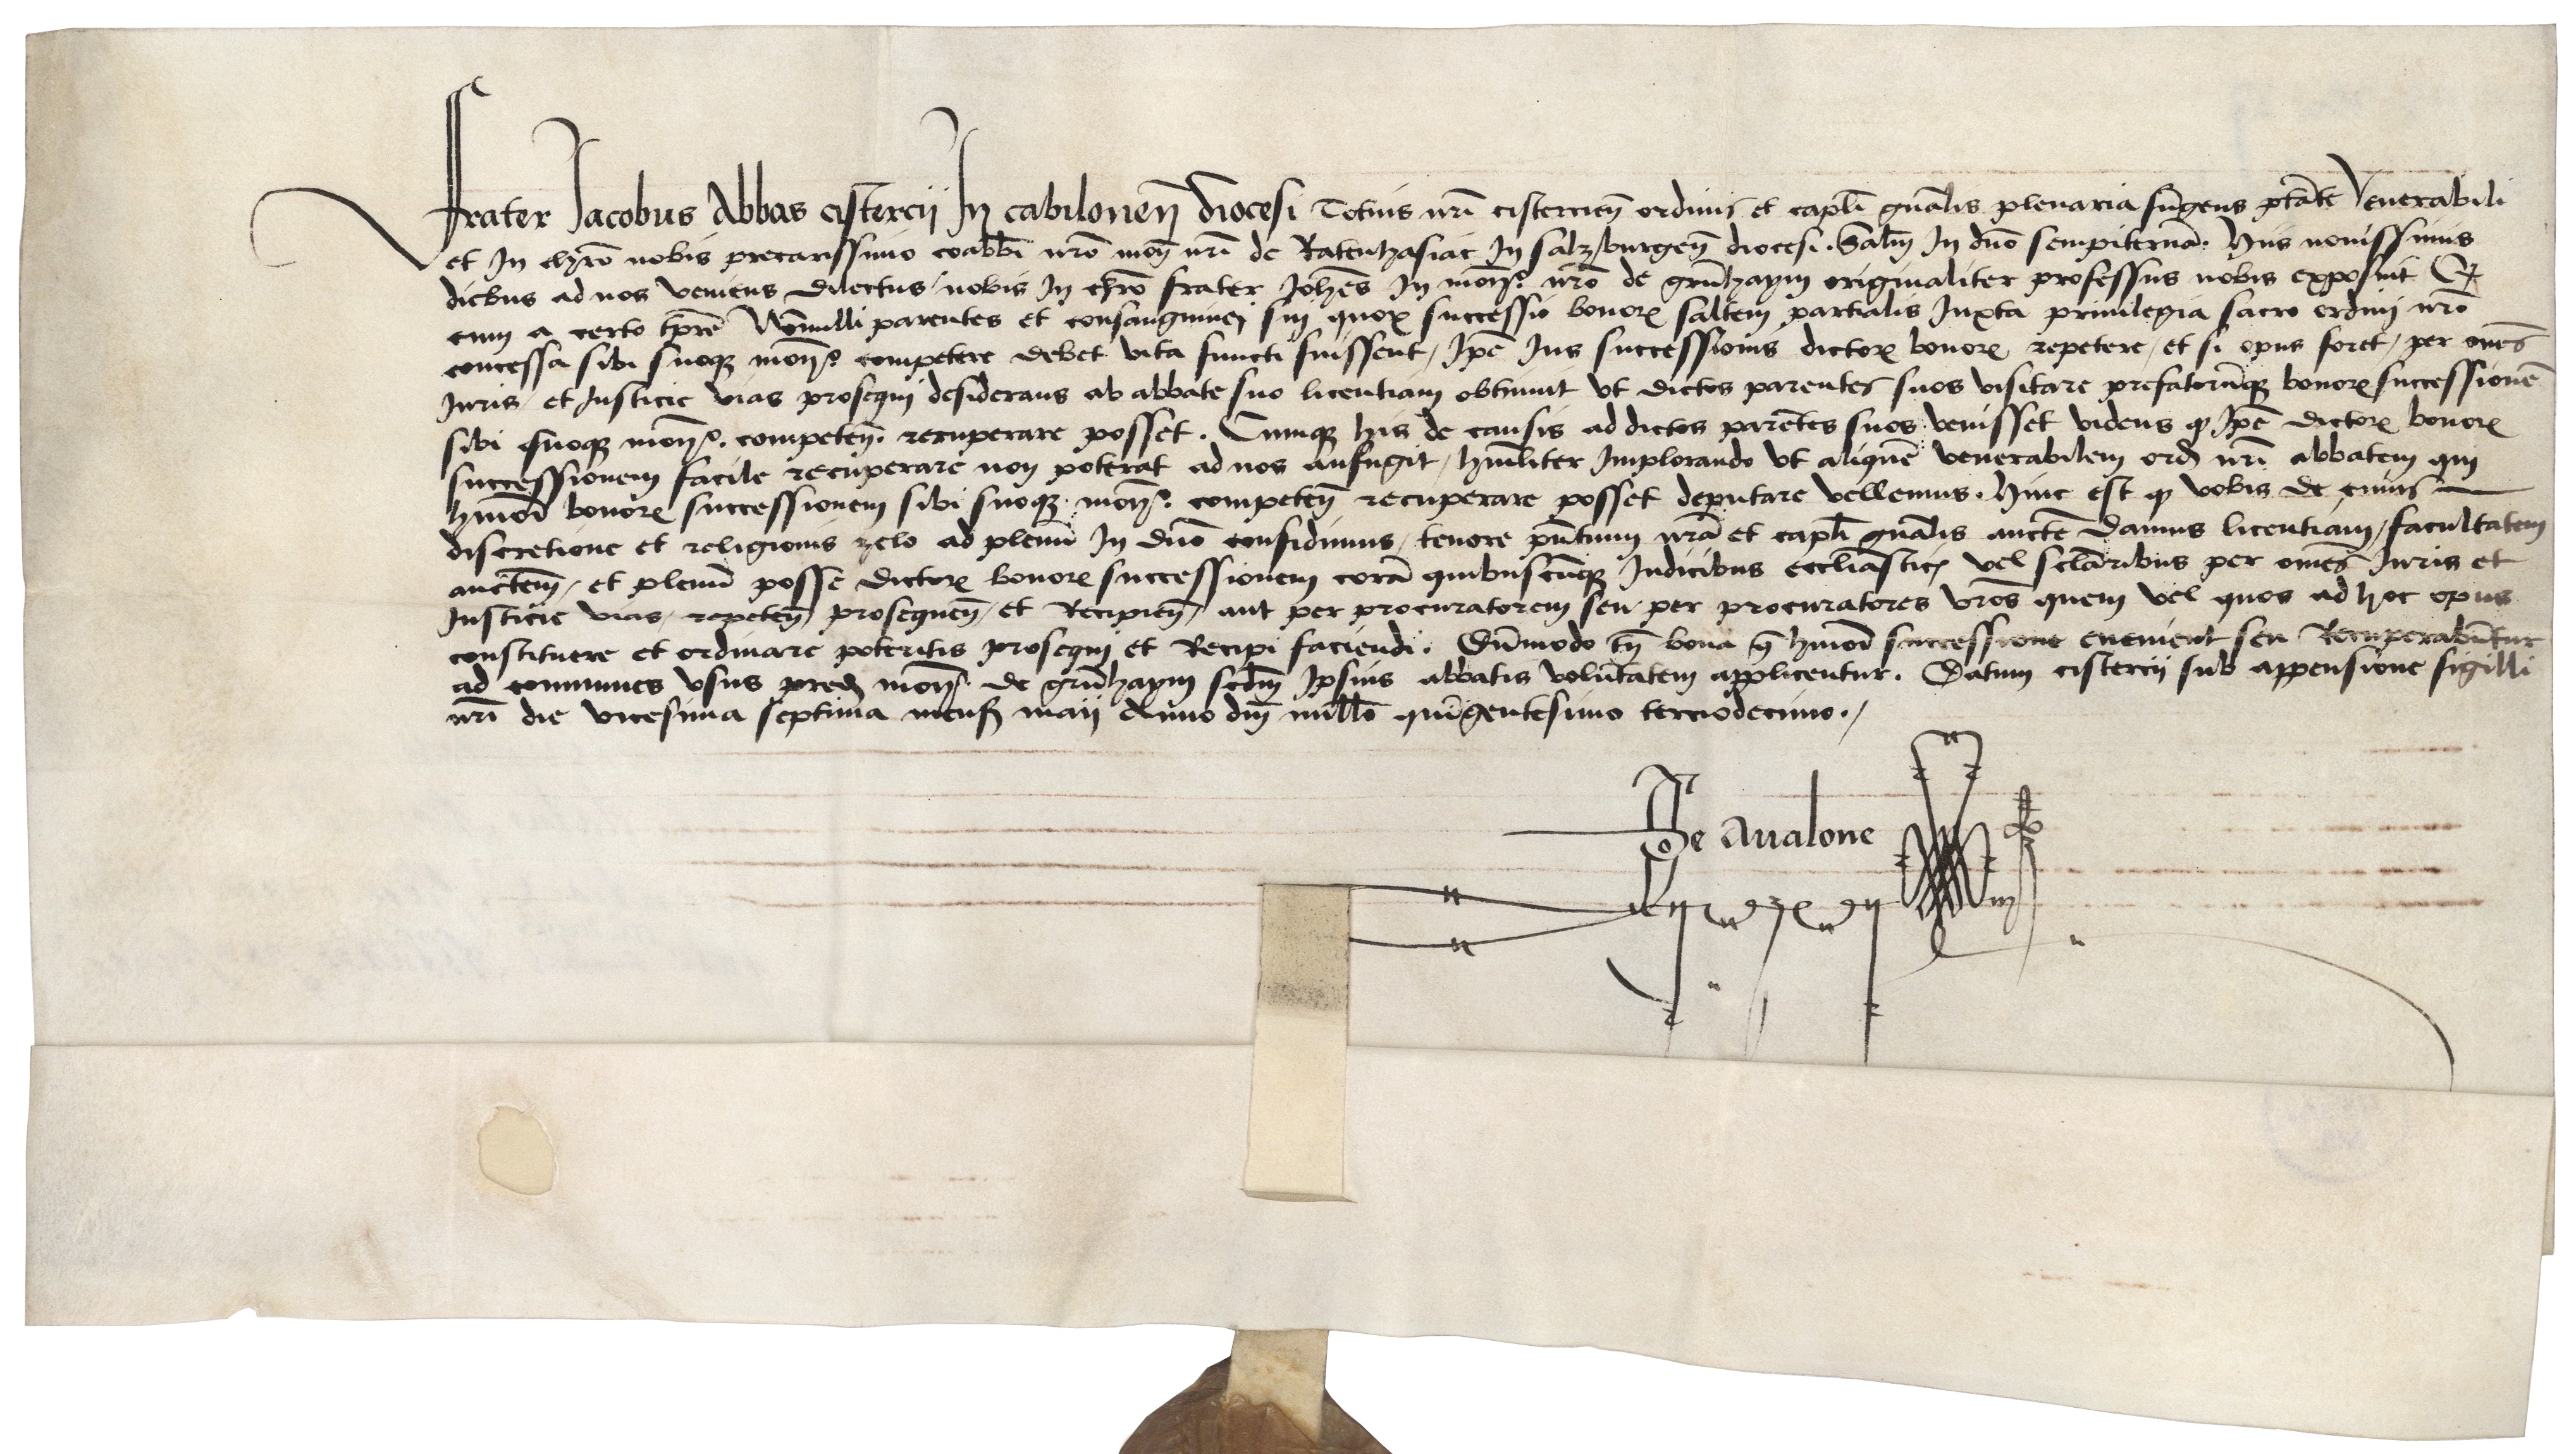 Frater Jacobus Abbas cistercij In cabilonen̄ diocesi Totius nr̄i cistercien̄ ordinis et capl̄i gn̄alis plenaria fūgens ptāte Venerabili
et In chr̄o nobis precarissimo coabb̄i nr̄o mon̄ nr̄i de Ratenhasiac In salzburgen̄ diocesi. Salt̄m In dn̄o sempiternā. Hijs nouissimis
diebus ad nos veniens dilectus nobis In chr̄o frater Joh̄es In mon̄rio nr̄o de grūhaym originaliter professus nobis exposuit Qꝫ
cum a certo tp̄re Nōnulli parentes et consanguinej sui quoꝝ successio bonoꝝ saltem partialis Juxta priuilegia sacro ordinj nr̄o
concessa sibi suoqꝫ mon̄rio competere debet vita functi fuissent, Ip̄e Jus successionis dictoꝝ bonoꝝ repetere, et si opus foret, per om̄es
Juris et Justicie vias prosequj desiderans ab abbate suo licentiam obtinuit vt dictos parentes suos visitare prefatorūqꝫ bonoꝝ successionē
sibi suoqꝫ mon̄rio. competen̄. recuperare posset. Cumqꝫ his de causis ad dictos parētes suos venisset videns ꝙ Ip̄e dictoꝝ bonoꝝ
successionem facile recuperare non poterat ad nos aufugit, hūiliter Implorando vt aliquē venerabilem ord̄ nr̄i abbatem qui
hmōi bonoꝝ successionem sibi suoqꝫ mon̄rio competen̄ recuperare posset deputare vellemus. Hinc est ꝙ vobis de cuius
discretione et religionis zelo ad plenū In dn̄o confidimus, tenore pn̄tium nr̄a et capl̄i gn̄alis aucte damus licentiam, facultatem
auctēm, et plenū posse dictoꝝ bonoꝝ successionem corā quibuscūqꝫ Judicibus eccl̄iasticis vel sclāribus per om̄es Juris et
Justicie vias, repeten̄, prosequen̄, et Recipien̄, aut per procuratorem seu per procuratores vr̄os quem vel quos ad hoc opus
constituere et ordinare poteritis prosequj et Recipi faciendi. Dūmodo tn̄ bona q̄ hmōi successione euenient seu Recuperabūtur
ad communes vsus pred̄ mon̄rij de grūhaym scd̄m Ipsius abbatis volūtatem applicentur. Datum cistercij sub appensione sigilli
nr̄i die vicesima septima mens̄ maij Anno dn̄i mill̄o quīgentesimo terciodecimo.
De Aualone